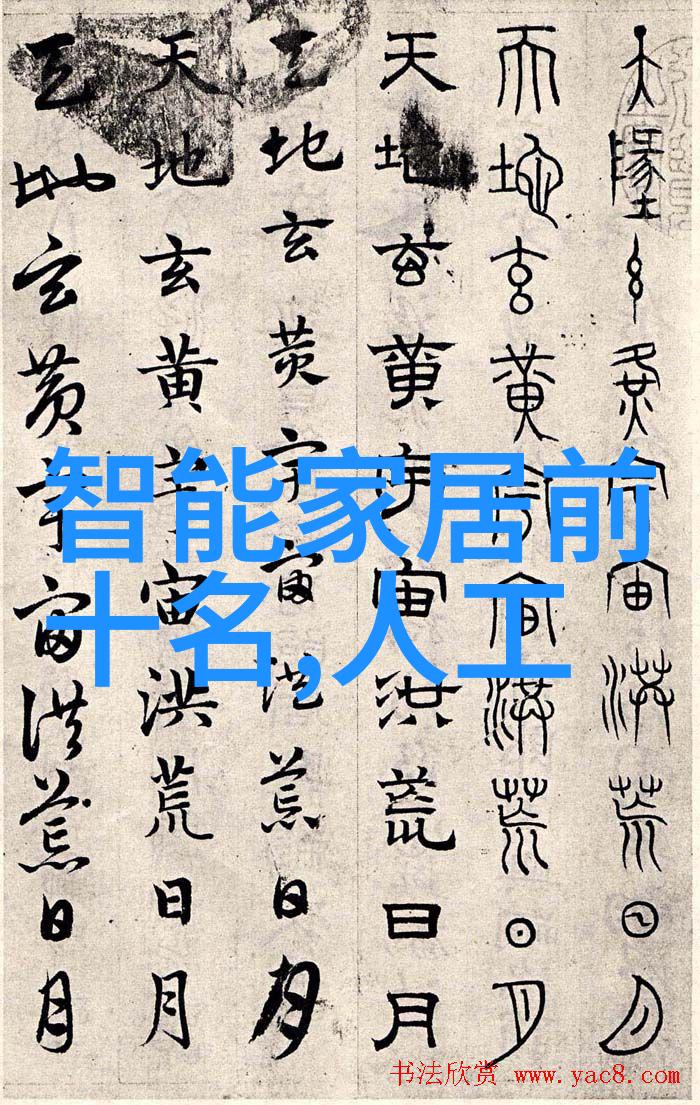 天墬玄黄宇宙洪荒日月
天地玄黄宇宙洪荒日月
天地玄黄宇宙洪荒日月
天地玄黄宇宙洪荒日月
天地玄黄宇宙洪荒日月
天地玄黄宇宙洪荒日月
智能家居前
十名,人工
书法欣赏 www.yac8.com